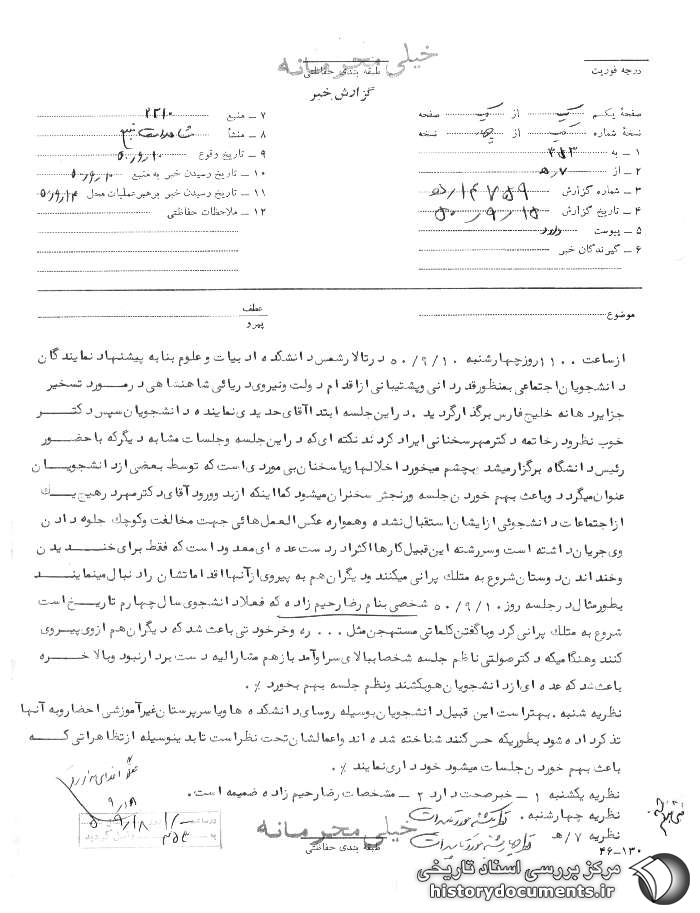 خیلی محرمانه
طبقه بندی حفاظتی
درجه فوریت
گزارش خبر
صفحهٔ یکم یک از یک صفحه
نسخهٔ شماره یک از نسخه
۱ – به ۳۵۳
۲ – از ۷/ه
۳ – شماره گزارش
۴ – تاریخ گزارش ۵۰/۹/۱۵
۵ – پیوست دارد
۶ – گیرندگان خبر
۷ – منبع ۲۲۱۰
۸ – منشأ مشاهدات منبع
۹ – تاریخ وقوع ۵۰/۹/۱۰
۱۰ – تاریخ رسیدن خبر به منبع ۵۰/۹/۱۰
۱۱ – تاریخ رسیدن خبر برهبر عملیات محل ۵۰/۹/۱۴
۱۲ – ملاحظات حفاظتی
موضوع
عطف
پیرو
از ساعت ۱۱۰۰ روز چهارشنبه ۵۰/۹/۱۰ در تالار شمس دانشکده ادبیات و علوم بنا به پیشنهاد نمایندگان
دانشجویان اجتماعی بمنظور قدردانی و پشتیبانی از اقدام دولت و نیروی دریائی شاهنشاهی در مورد تسخیر
جزایر دهانه خلیج فارس برگذار گردید . در این جلسه ابتدا آقای حدیدی نماینده دانشجویان سپس دکتر
خوب نظر و در خاتمه دکتر مهر سخنانی ایراد کردند نکته ای که در این جلسه و جلسات مشابه دیگر که با حضور
رئیس دانشگاه برگزار میشد بچشم میخورد اخلالها و یا سخنان بی موردی است که توسط بعضی از دانشجویان
عنوان میگردد و باعث بهم خوردن جلسه و رنجش سخنران میشود کما اینکه از بدو ورود آقای دکتر مهر در هیچ یک
از اجتماعات دانشجوئی از ایشان استقبال نشده و همواره عکس العمل هائی جهت مخالفت و کوچک جلوه دادن
وی جریان داشته است و سررشته این قبیل کارها اکثرا در دست عده ای معدود است که فقط برای خندیدن
و خنداندن دوستان شروع به متلک پرانی میکنند و دیگران هم به پیروی از آنها اقداماتشان را دنبال مینمایند
بطور مثال در جلسه روز ۵۰/۹/۱۰ شخصی بنام رضا رحیم زاده که فعلا دانشجوی سال چهارم تاریخ است
شروع به متلک پرانی کرد و با گفتن کلماتی مستهجن مثل ... ره و خر خودتی باعث شد که دیگران هم از وی پیروی
کنند و هنگامیکه دکتر صولتی ناظم جلسه شخصا ببالای سر او آمد باز هم مشارالیه دست بردار نبود و بالاخره
باعث شد که عده ای از دانشجویان هو بکشند و نظم جلسه بهم بخورد ٪.
نظریه شنبه . بهتر است این قبیل دانشجویان بوسیله روسای دانشکده ها و یا سرپرستان غیر آموزشی احضار و به آنها
تذکر داده شود بطوریکه حس کنند شناخته شده اند و اعمالشان تحت نظر است تا بدینوسیله از تظاهراتی که
باعث بهم خوردن جلسات میشود خودداری نمایند ٪.
نظریه یکشنبه ۱ – خبر صحت دارد ۲ – مشخصات رضا رحیم زاده ضمیمه است .
نظریه چهارشنبه . نظریه یکشنبه مورد تائید است
نظریه ۷/ه نظریه چهارشنبه مورد تائید است
خیلی محرمانه
طبقه بندی حفاظتی
۴۶-۱۳۰
مرکز بررسی اسناد تاریخی
historydocuments.ir